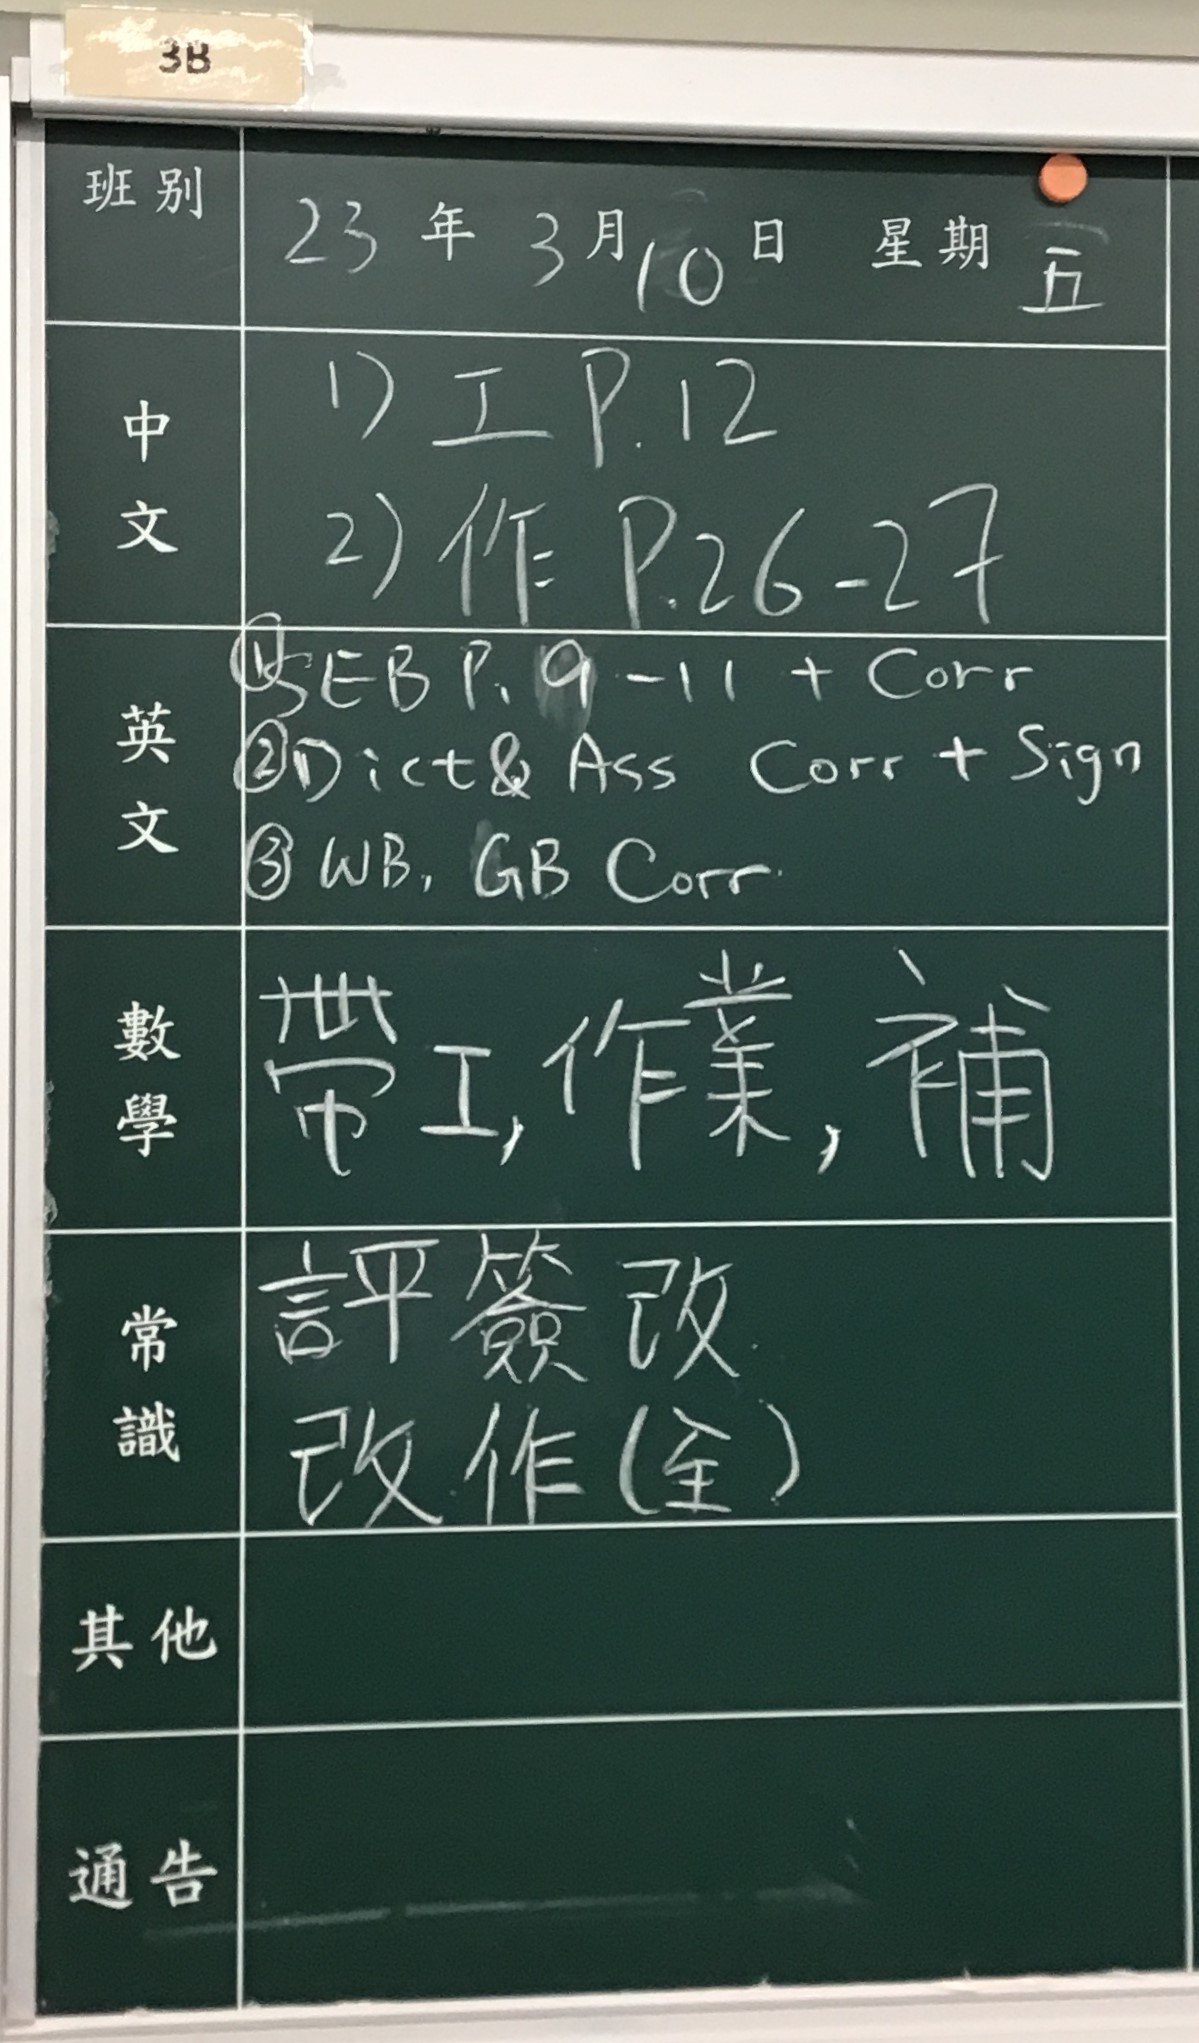 3B
班別 23年3月10日 星期五
中文
1) 工 P.12
2) 作 P.26-27
英文
① SEB P. 9-11 + Corr
② Dict & Ass Corr + Sign
③ WB, GB Corr.
數學
帶工, 作業, 補
常識
評簽改
改作(全)
其他
通告